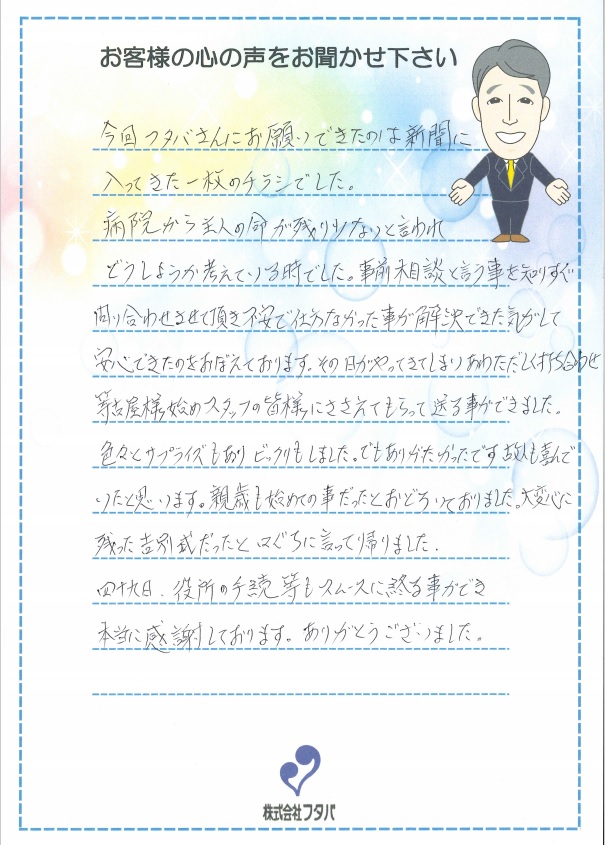 お客様の心の声をお聞かせ下さい
今回フタバさんにお願いできたのは新聞に
入ってきた一枚のチラシでした。
病院から主人の命が残り少ないと言われ
どうしようか考えている時でした。事前相談と言う事を知りすぐ
問い合わせさせて頂き不安で仕方なかった事が解決できた気がして
安心できたのをおぼえております。その日がやってきてしまいあわただしく打ち合わせ
等古屋様始めスタッフの皆様にささえてもらって送る事ができました。
色々とサプライズもあり ビックリもしました。でもありがたかったです 故人も喜んで
いたと思います。親戚も始めての事だったとおどろいておりました。大変心に
残った告別式だったと口ぐちに言って帰りました.
四十九日、役所の手続等もスムースに終る事ができ
本当に感謝しております。ありがとうございました。
株式会社フタバ